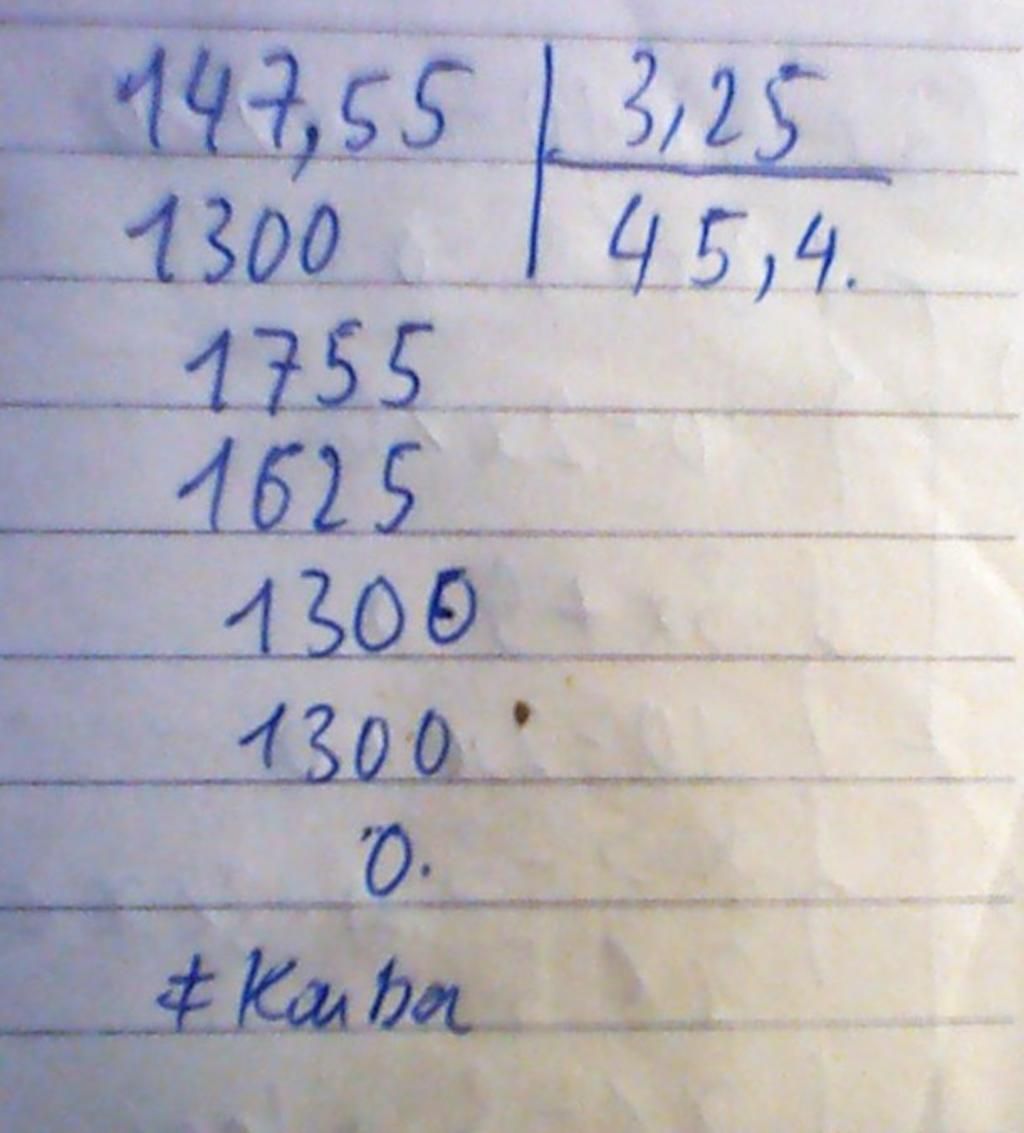 147,55 | 3,25
1300 | 45,4.
1755
1625
1300
1300
0.
≠Kaiba